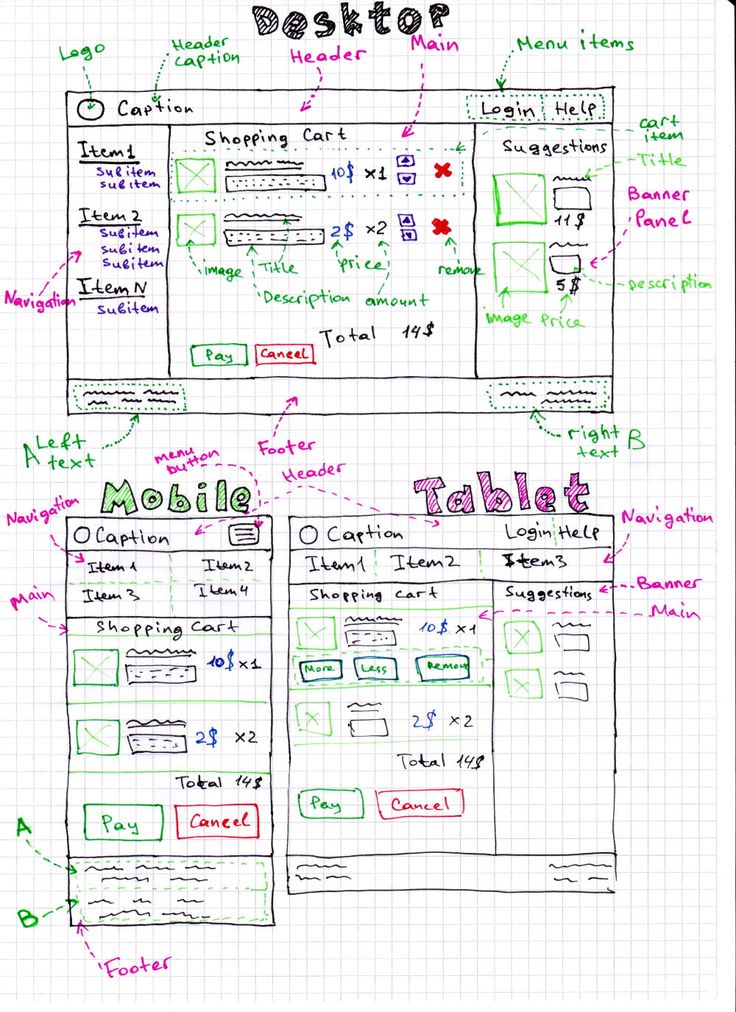 Desktop
Logo
Header caption
Header
Main
Menu items
Caption
Login Help
Shopping Cart
cart item
Item1
subitem
subitem
10$ x1
Suggestions
Title
11$
Banner Panel
Item 2
subitem
subitem
subitem
2$ x2
image
Title
Price
remove
Description
amount
5$
Description
image
Price
Navigation
Item N
subitem
Total 14$
Pay
Cancel
A Left text
Footer
right text B
Mobile
menu button
Header
Navigation
Caption
Item1
Item2
Item3
Item4
Main
Shopping Cart
10$ x1
2$ x2
Total 14$
Pay
Cancel
A
B
Footer
Tablet
Caption
Login Help
Navigation
Item1
Item2
Item3
Shopping Cart
Suggestions
Banner
Main
10$ x1
More
Less
Remove
2$ x2
Total 14$
Pay
Cancel